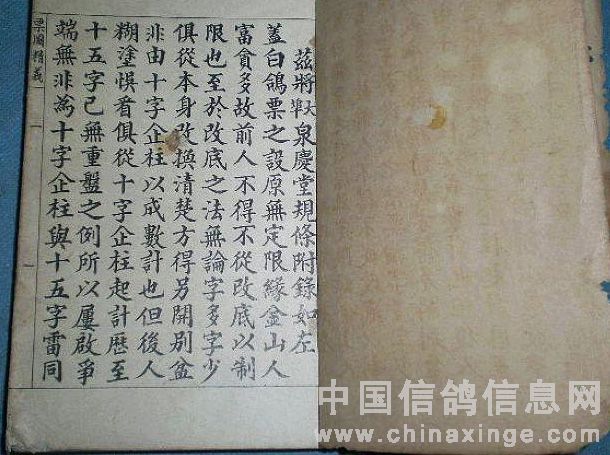 茲將泉慶堂規條附錄如左
蓋白鴿票之設原無定限緣金山人
富貪多故前人不得不從改底以制
限也至於改底之法無論字多字少
俱從本身改換清楚方得另開別盆
非由十字企柱以成數計也但後人
糊塗悞看俱從十字企柱起計歷至
十五字已無重盤之例所以屢啟爭
端無非為十字企柱與十五字雷同
票圖精義 一
中国信鸽信息网
www.chinaxinge.com